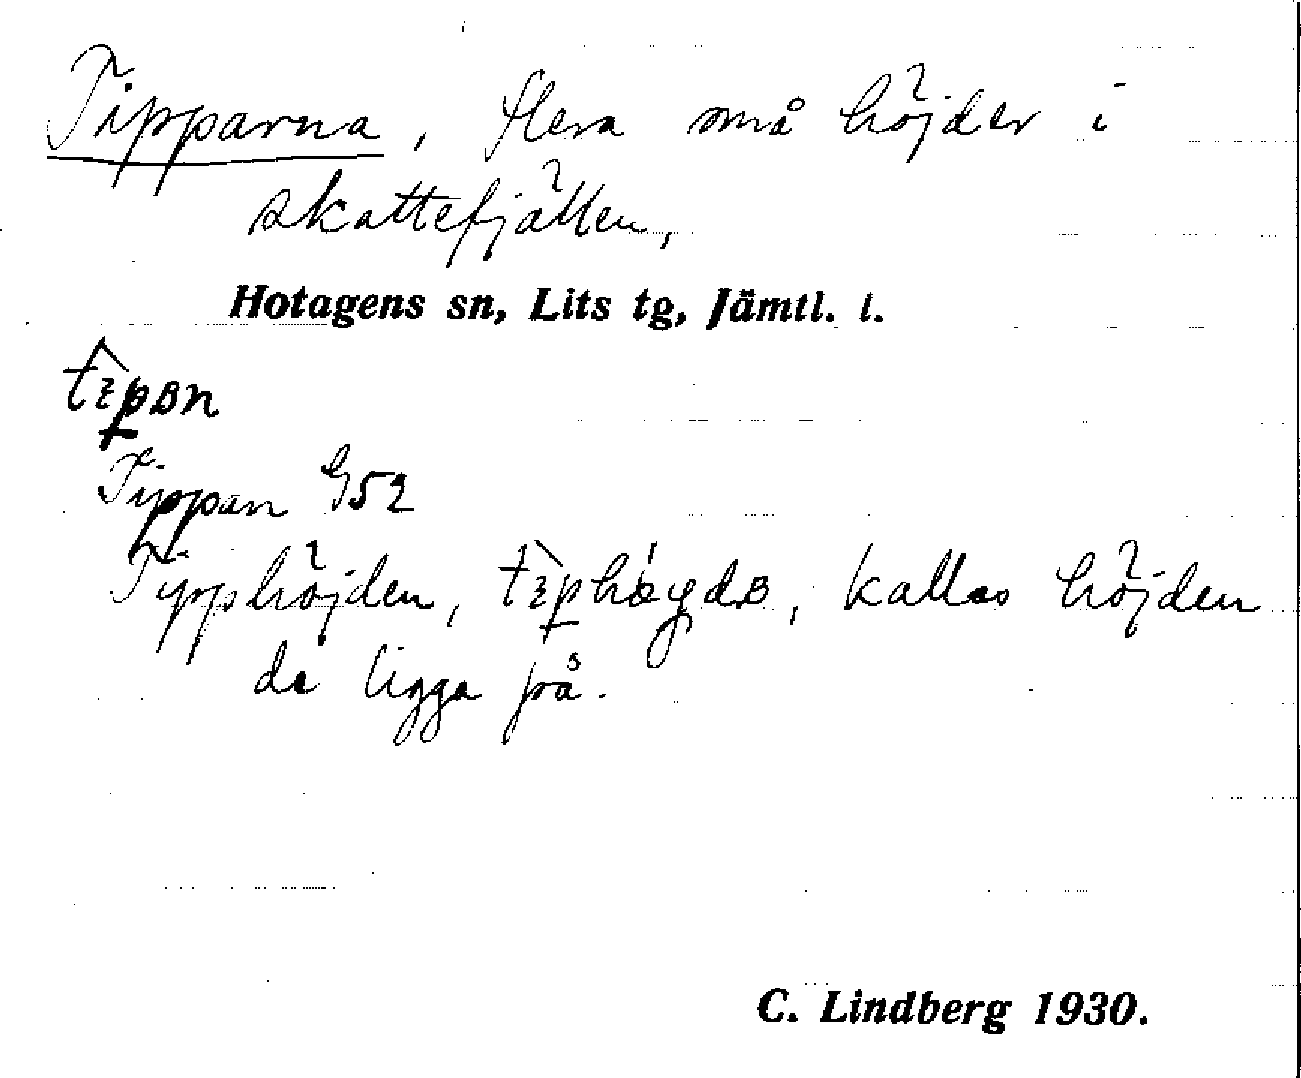 Tipparna, flera små höjder i
skattefjällen,
Hotagens sn, Lits tg, Jämtl. l.
Tippan G52
Tipphöjden, kallas höjden
de ligga på.
C. Lindberg 1930.